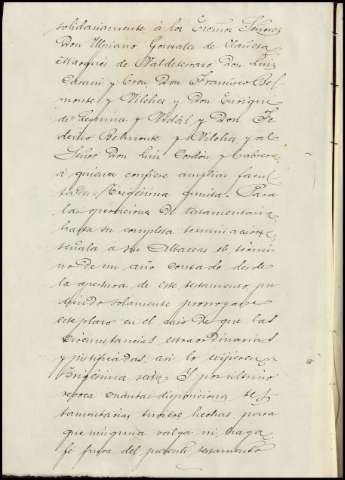 solidariamente á los Excmos Señores
Don Mariano González de
Marqués de Don Luis
Don Francisco Bel-
monte y Vilches y Don Enrique
de y Vidal y Don Fe-
derico Belmonte y Vilches y al
Señor Don Luis Cordón y
á quienes confiere amplias facul-
tades. Trigésima quinta. Para
las operaciones de testamentaria
hasta su completa terminacion
señala a sus Albaceas el térmi-
no de un año contado desde
la apertura de este testamento pu-
diendo solamente prorrogarse
este plazo en el caso de que las
circunstancias extraordinarias
y justificadas asi lo exigieren
Trigésima sexta. Y por último
revoca cuantas disposiciones tes-
tamentarias tuviese hechas para
que ninguna valga ni haga
fe fuera del presente testamento